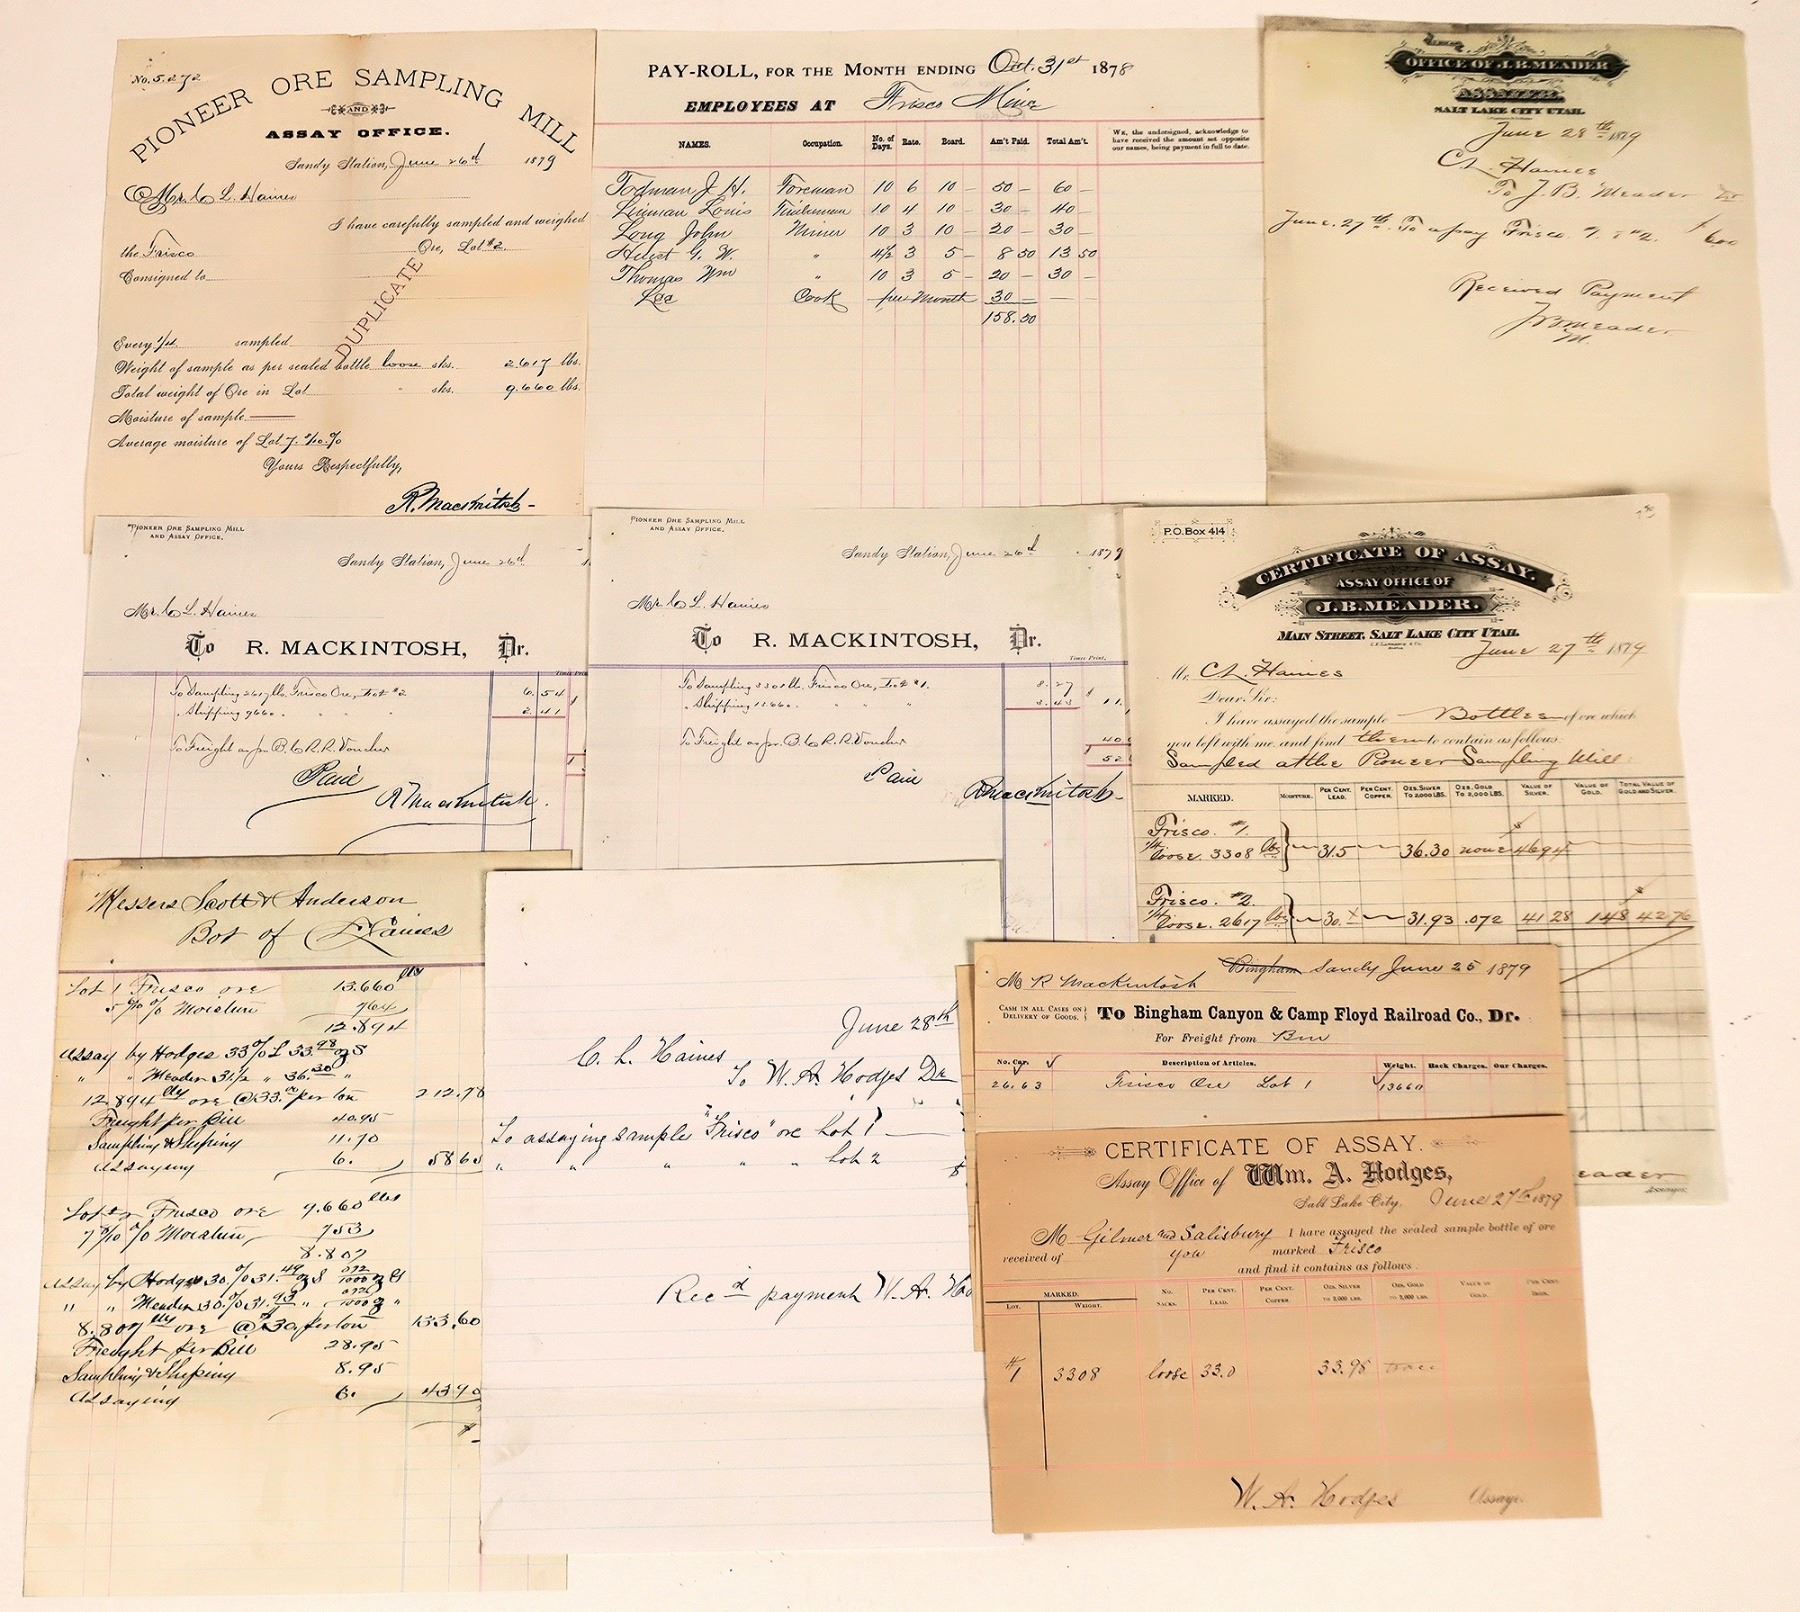 No. 5.272
PIONEER ORE SAMPLING MILL
AND
ASSAY OFFICE.
Sandy Station, June 26d 1879
Mr. C L. Haines
I have carefully sampled and weighed
the Frisco Ore, Lot #2.
Consigned to
DUPLICATE
Every sampled
Weight of sample as per sealed bottle loose sks. 2617 lbs.
Total weight of Ore in Lot " sks. 9.660 lbs.
Moisture of sample
Average moisture of Lot 7. 8/10. %
Yours Respectfully,
R. Mackintosh
PAY-ROLL, FOR THE MONTH ENDING Oct. 31st 1878
EMPLOYEES AT Frisco Mine
NAMES. Occupation. No. of Days. Rate. Board. Am't Paid. Total Am't.
WE, the undersigned, acknowledge to
have received the amount set opposite
our names, being payment in full to date.
Todman J. H. Foreman 10 6 10 - 50 - 60 -
Linman Louis Timberman 10 4 10 - 30 - 40 -
Long John Miner 10 3 10 - 20 - 30 -
G. W. " 4½ 3 5 - 8 50 13 50
Thomas Wm " 10 3 5 - 20 - 30 -
Lee Cook per Month 30 -
158.50
OFFICE OF J. B. MEADER
ASSAYER.
SALT LAKE CITY UTAH.
June 28th 1879
C L. Haines
To J. B. Meader Dr
June. 27th. To assay Frisco #1. & #2. $ 6 00
Received Payment
J B Meader
M.
PIONEER ORE SAMPLING MILL
AND ASSAY OFFICE.
Sandy Station, June 26d
Mr. C L. Haines
To R. MACKINTOSH, Dr.
Times Print
To Sampling 2617 lb. Frisco Ore, Lot #2 6. 54
" Shipping 9660. " " " 2. 41
To Freight as pr. B. C R. R. Voucher
Paid
R Mackintosh.
PIONEER ORE SAMPLING MILL
AND ASSAY OFFICE.
Sandy Station, June 26d 1879
Mr. C L. Haines
To R. MACKINTOSH, Dr.
Times Print,
To Sampling 3308 lb. Frisco Ore, Lot #1. 8. 27
" Shipping 13.660. " " " 3. 43 11
To Freight as pr. B. C R. R. Voucher 40
52
Paid
R Mackintosh
P.O. Box 414
CERTIFICATE OF ASSAY.
ASSAY OFFICE OF
J. B. MEADER.
MAIN STREET, SALT LAKE CITY UTAH.
June 27th 1879
Mr. C L. Haines
Dear Sir:
I have assayed the sample Bottles of ore which
you left with me and find them to contain as follows:
Sampled at the Pioneer Sampling Mill
MARKED. MOISTURE. PER CENT. LEAD. PER CENT. COPPER. OZS. SILVER TO 2,000 LBS. OZS. GOLD TO 2,000 LBS. VALUE OF SILVER. VALUE OF GOLD. TOTAL VALUE OF GOLD AND SILVER.
Frisco. #1.
loose. 3308 lbs 31.5 36.30 none $46 94
Frisco. #2.
loose. 2617 lbs 30. 31.93 .072 41 28 1 48 $42 76
Meader
Messers Scott & Anderson
Bot of C L Haines
Lot 1 Frisco ore 13.660 lbs
% Moisture 764
12.894
Assay by Hodges 33% L 33.98 oz S
" " Meader 31½ " 36.30 "
12.894 lbs ore @ 33.00 per ton 212.78
Freight per Bill 40.95
Sampling & Shiping 11.70
Assaying 6. 58 65
Lot 2 Frisco ore 9.660 lbs
7 8/10 % Moisture 753
8.807
Assay by Hodges 30.% 31.49 oz S 072/1000 oz G
" " Meader 30.% 31.93 " 072/1000 oz "
8.807 lbs ore @ 30. per ton 133.60
Freight per Bill 28.95
Sampling & Shiping 8.95
Assaying 6. 43 90
$
June 28th
C. L. Haines
To W. A. Hodges Dr
To assaying sample "Frisco" ore Lot 1
" " " " " Lot 2
$
Rec'd payment W. A. Ho
Bingham Sandy June 25 1879
M R Mackintosh
CASH IN ALL CASES ON
DELIVERY OF GOODS.
To Bingham Canyon & Camp Floyd Railroad Co., Dr.
For Freight from Bin
No. Car. Description of Articles. Weight. Back Charges. Our Charges.
26.63 Frisco Ore Lot 1 13660
CERTIFICATE OF ASSAY.
Assay Office of Wm. A. Hodges,
Salt Lake City, June 27th 1879
M Gilmer and Salisbury I have assayed the sealed sample bottle of ore
received of you marked Frisco
and find it contains as follows.
MARKED. LOT. WEIGHT. NO. SACKS. PER CENT. LEAD. PER CENT. COPPER. OZS. SILVER TO 2,000 LBS. OZS. GOLD TO 2,000 LBS. VALUE OF GOLD. PER CENT. IRON.
#1 3308 loose 33.0 33.98 trace
W. A. Hodges Assayer.